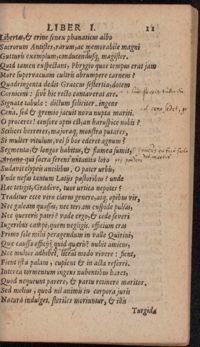 LIBER I.
Libertas, & crine senex phanaticus albo
Sacrorum Antistes, rarum, ac memorabile magni
Gutturis exemplum, conducendusq; magister.
Quid tamen exspectant, Phrygio quos tempus erat jam
More supervacuam cultris abrumpere carnem?
Quadringenta dedit Gracchus sestertia, dotem
Cornicini: sive hic recto cantaverat ære.
Signatæ tabulæ: dictum feliciter, ingens
Cena sedet, gremio jacuit nova nupta mariti.
O proceres! censore opus est, an haruspice nobis?
Scilicet horreres, majoraq; monstra putares,
Si mulier vitulum, vel si bos ederet agnum?
Segmenta, & longos habitus, & flamea sumit,
Arcano qui sacra ferens nutantia loro
Sudavit clypeis ancilibus, O pater urbis,
Unde nefas tantum Latiis pastoribus? unde
Hæc tetigit, Gradive, tuos urtica nepotes?
Traditur ecce viro clarus genere, atq; opibus vir,
Nec galeam quassas, nec terram cuspide pulsas,
Nec quereris patri? vade ergo, & cede severi
Jugeribus campi, quem negligis. officium cras
Primo sole mihi peragendum in valle Quirini,
Quæ caussa officij? quid quæris? nubit amicus,
Nec multos adhibet, liceat modo vivere: fient,
Fient ista palam, cupient & in acta referri.
Interea tormentum ingens nubentibus hæret,
Quod nequeunt parere, & partu retinere maritos.
Sed melius, quod nil animis in corpora juris
Natura indulget. steriles moriuntur, & illis
Turgida